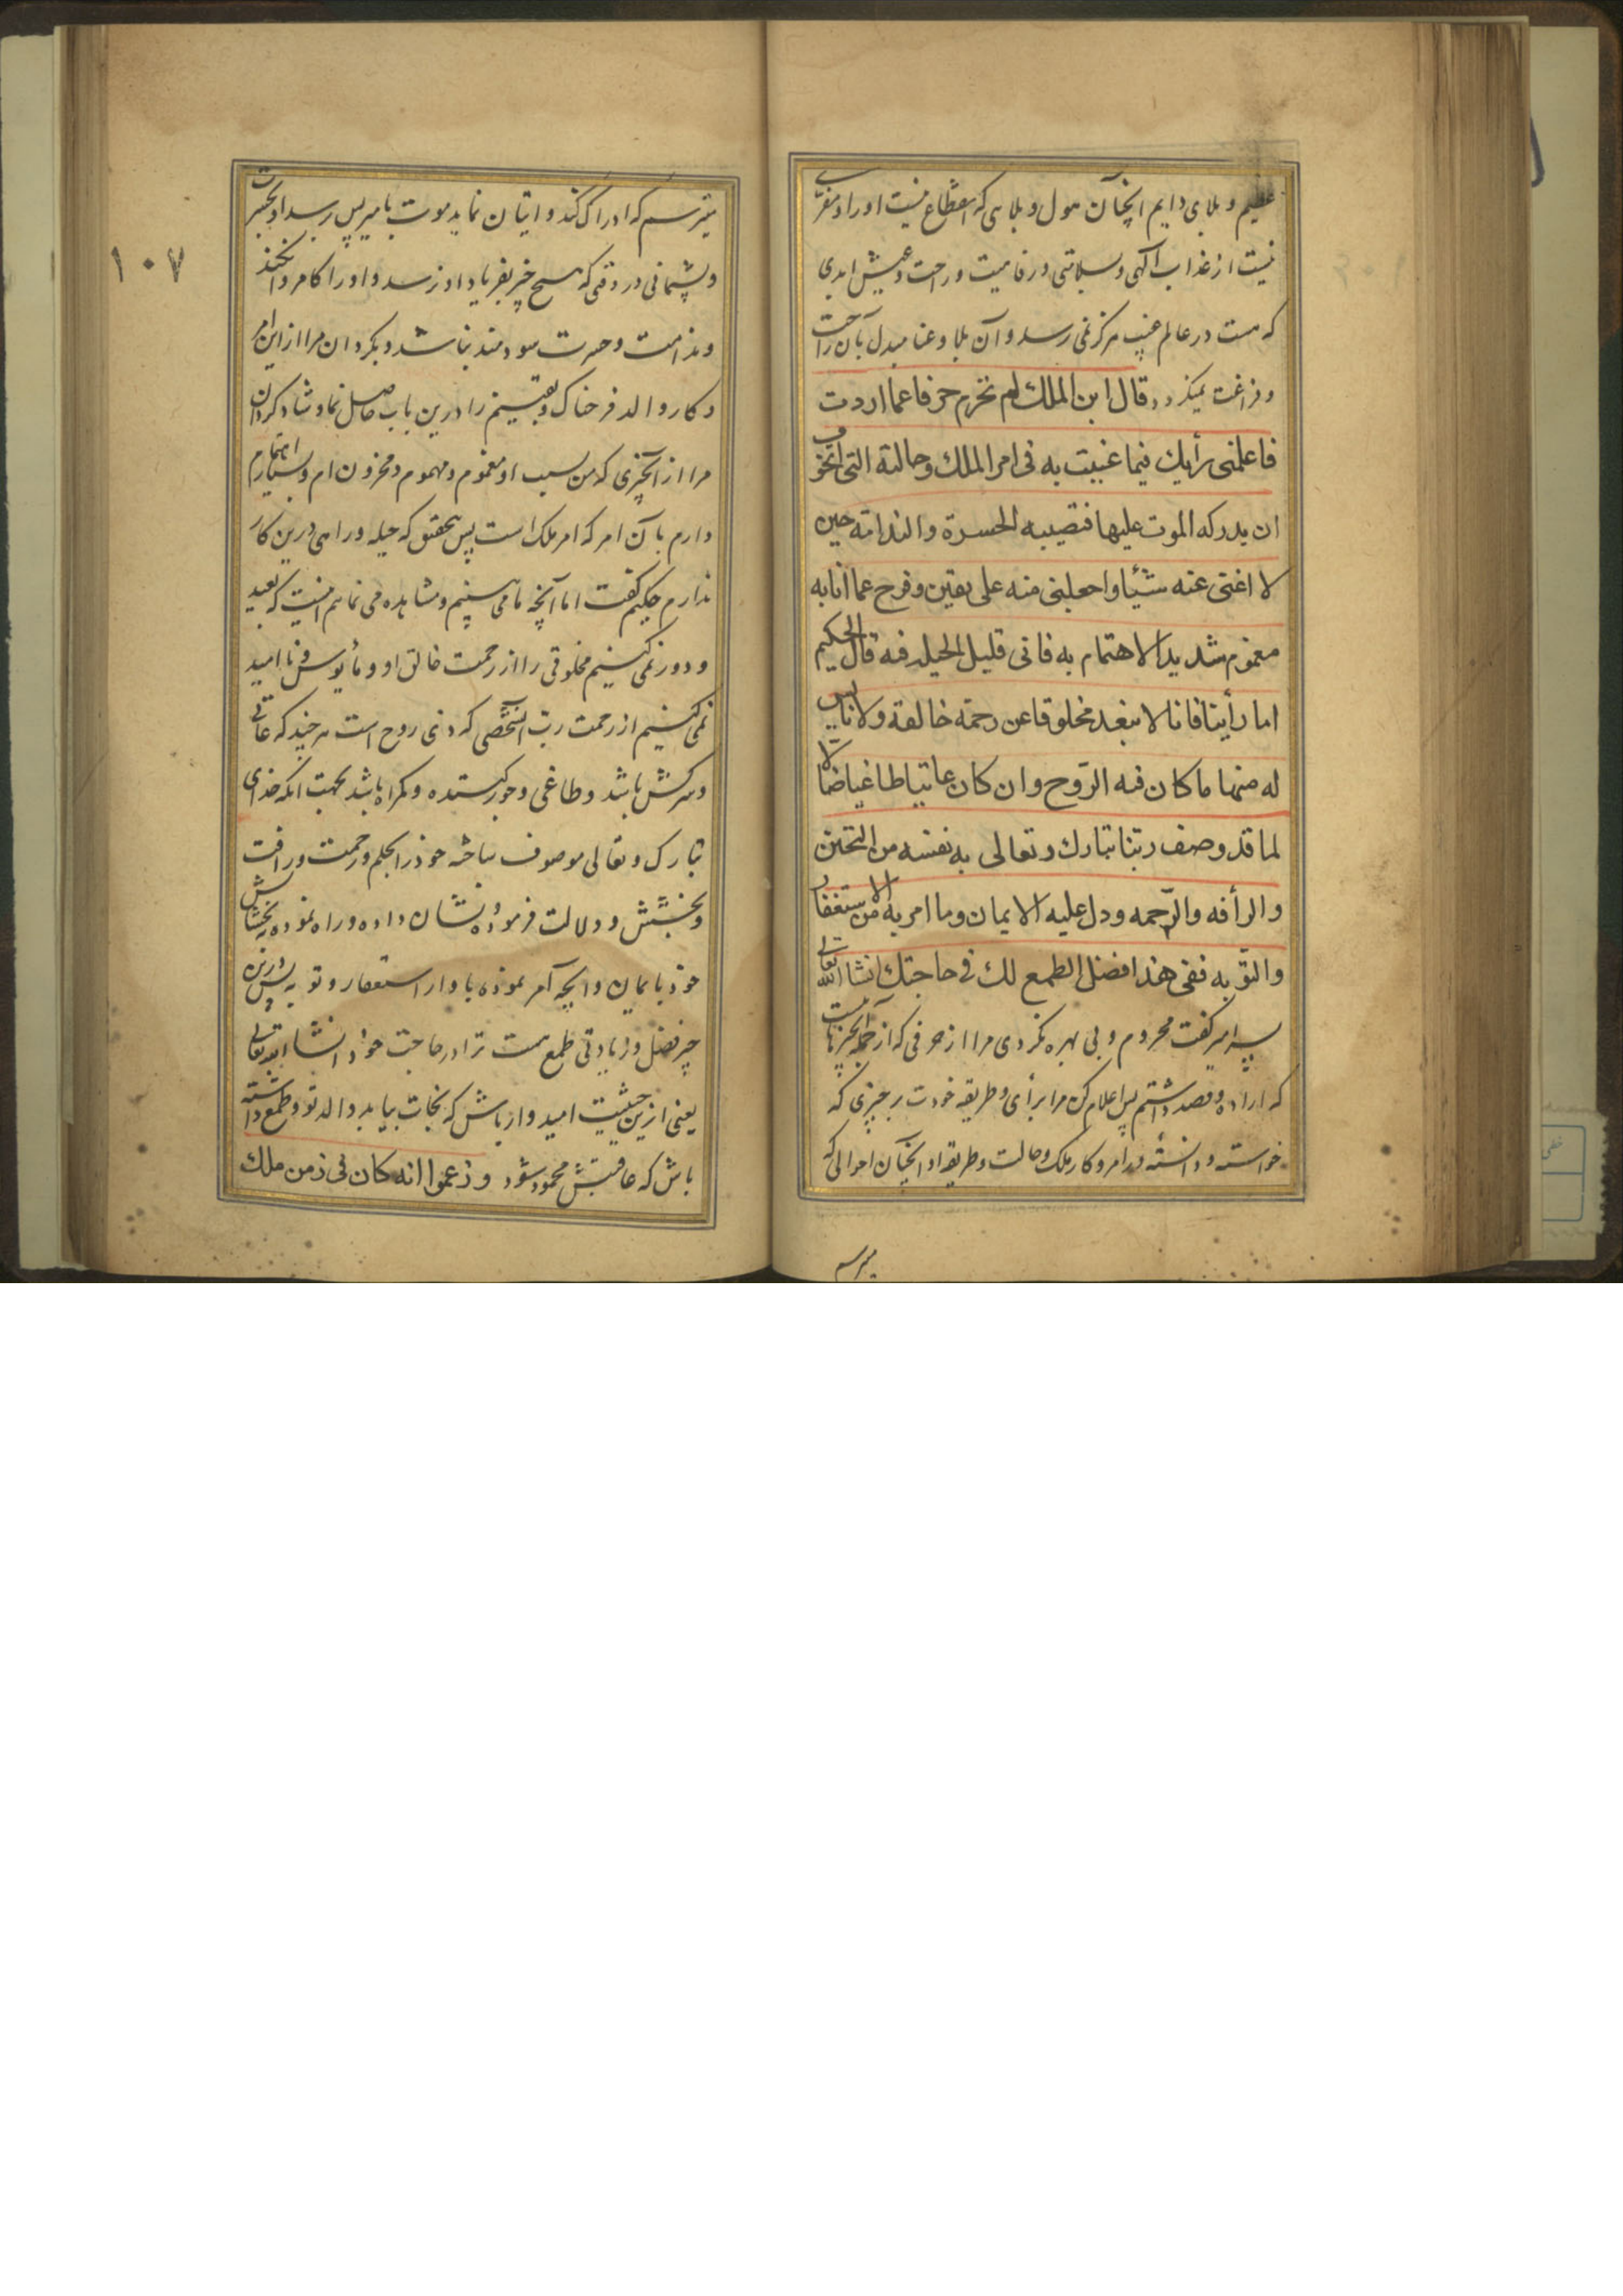 عظیم و بلای دایم انچنان هول و بلایی که انقطاع نیست او را و مفری
نیست از عذاب الهی و سلامتی و رفاهیت و راحت و عیش ابدی
که هست در عالم غیب هرگز نمی رسد و آن بلا و عنا مبدل بآن راحت
و فراغت نمیکردد قال ابن الملك لم تحرم حرفا عما اردت
فاعلمنی رأیك فیما غیبت به فی امر الملك وحالته التی اتخوف
ان یدرکه الموت علیها فتصیبه الحسرة والندامة حین
لا اغنی عنه شیئا واجعلنی منه علی یقین وفرح عما انا به
مغموم شدید الاهتمام به فانی قلیل الحیلة فیه قال الحکیم
اما رأینا فانا لا نبعد مخلوقا عن رحمة خالقه ولا نایس
له منها ما کان فیه الروح وان کان عاتیا طاغیا ضالا
لما قد وصف ربنا تبارك وتعالی به نفسه من التحنن
والرأفه والرّحمه ودل علیه الایمان وما امر به من الاستغفار
والتوبه ففی هذا افضل الطمع لك فی حاجتك انشا الله تعالی
پسر امیر گفت محروم و بی بهره نکردی مرا از حرفی که از جمله چیزهاست
که اراده و قصد داشتم پس اعلام کن مرا برأی و طریقه خودت بر چیزی که
خواسته و دانسته در امر و کار ملک و حالت و طریقه او انچنان احوالی که
میترسم
میترسم که ادراک کند و اتیان نماید موت بامیر پس برسد او را حسرت
و پشیمانی در وقتی که هیچ چیز بفریاد او نرسد و او را کامروا نکند
و ندامت و حسرت سودمند نباشد و بکردان مرا از این امر
و کار والد فرحناک و یقینم را درین باب حاصل نما و شاد کردان
مرا از آنچیزی که من بسبب او مغموم و مهموم و محزون ام و بسیار اهتمام
دارم بآن امر که امر ملک است پس بتحقیق که حیله و راهی درین کار
ندارم حکیم گفت اما آنچه ما می بینیم و مشاهده می نمائیم اینست که بعید
و دور نمی کنیم مخلوقی را از رحمت خالق او و مأیوس و ناامید
نمی کنیم از رحمت رب آنشخصی که ذی روح است هر چند که عاتی
و سرکش باشد و طاغی و جور کننده و کمراه باشد بجهت انکه خدای
تبارک و تعالی موصوف ساخته خود را بحلم و رحمت و رافت
و بخشش و دلالت فرموده و نشان داده و راه نموده ببخشایش
خود بایمان و انچه امر نموده باو از استغفار و توبه پس درین
چیز فضل و زیادتی طمع هست ترا در حاجت خود انشاء الله تعالی
یعنی ازین حیثیت امیدوار باش که نجات بیابد والد تو و طمع داشته
باش که عاقبتش محمود شود و زعموا انه کان فی زمن ملك
۱۰۷